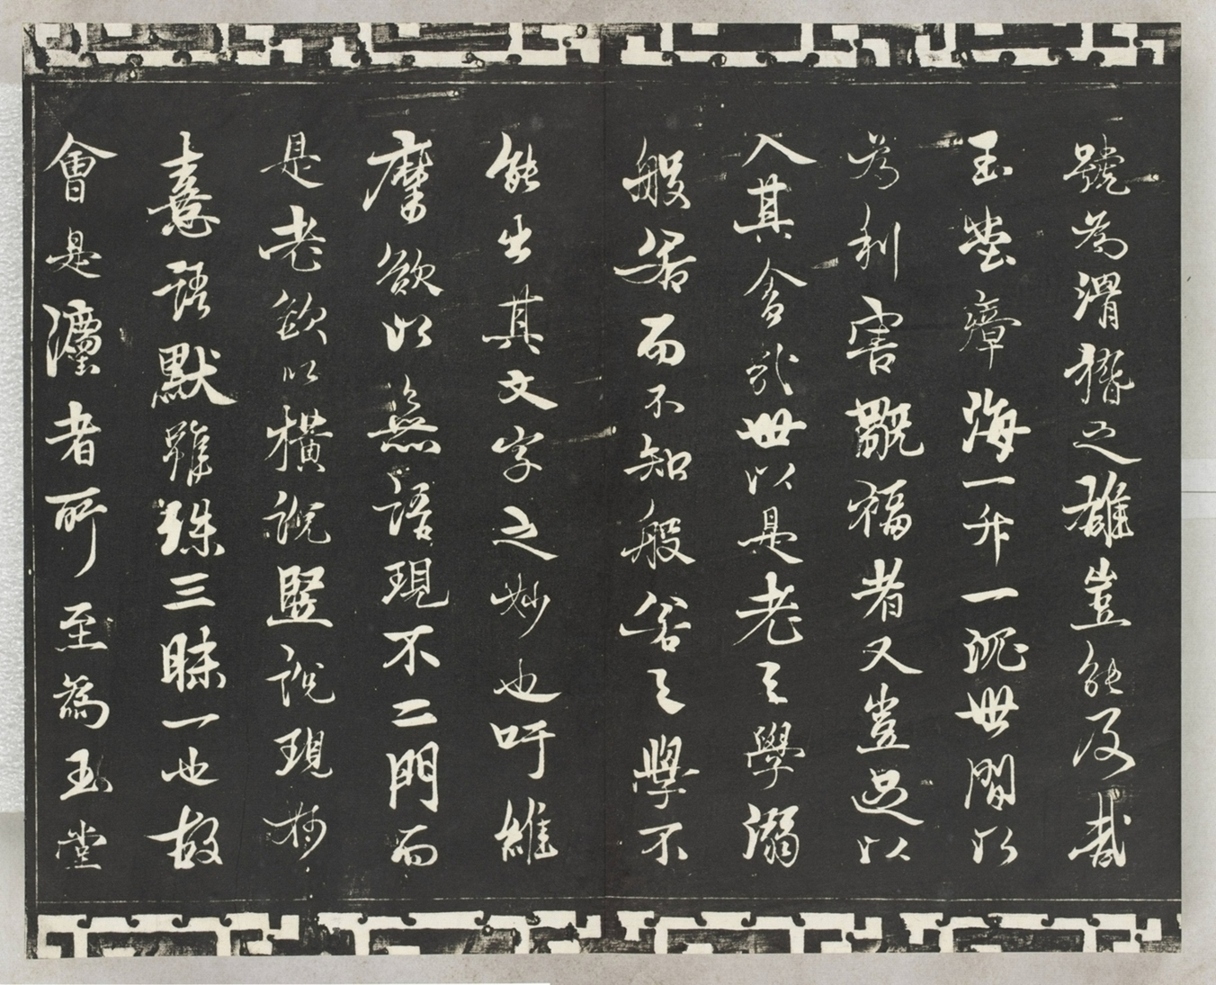 號為渭㵎之雄豈能及哉
玉堂瘴海一升一沉世間以
為利害觀福者又豈足以
入其舍哉世以是老之學溺
般若而不知般若之學不
能出其文字之妙也吁維
摩欲以無語現不二門而
是老欲以橫說竪說現妙
憙語默雖殊三昧一也故
會是灋者所至為玉堂